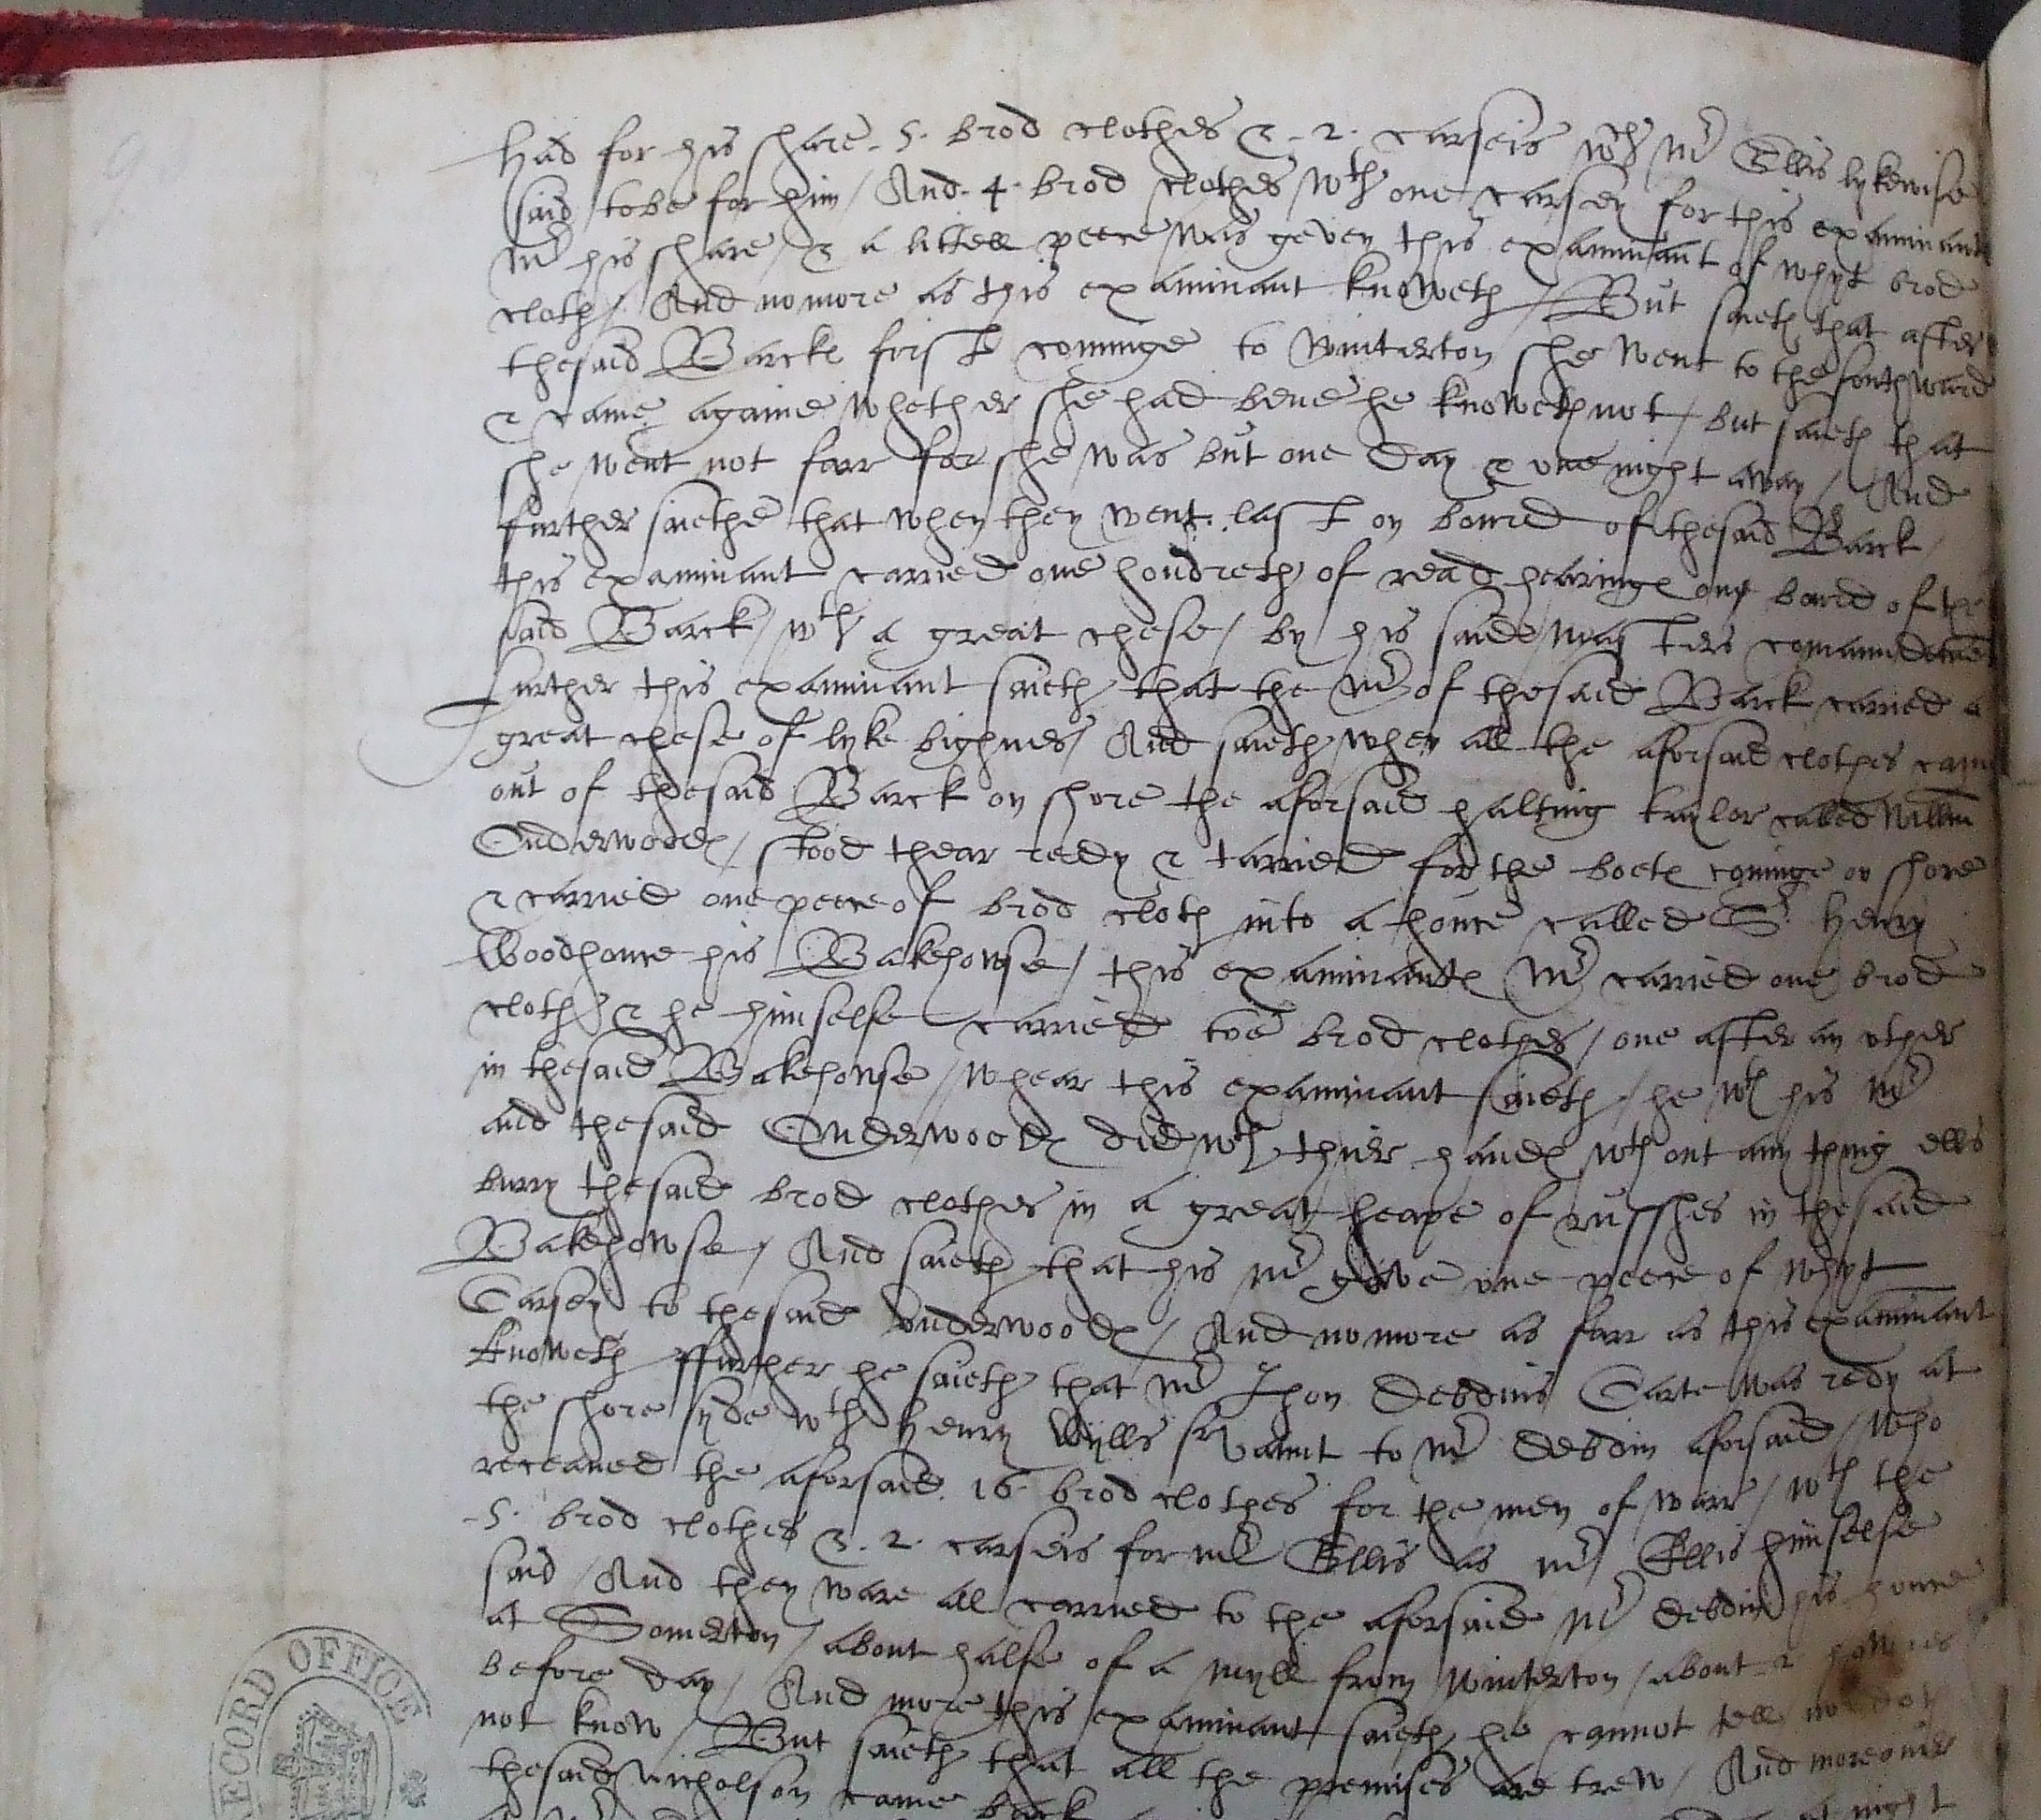 Had for his share .5. brod clothes & .2. carseis wch mr Ellis lykewise
said to be for him / And .4. brod clothes wth one carsey for this examinants
mr his share / & a littell peece was geven this examinant of whyt brod
cloth / And no more as this examinant knoweth / But saieth that after
thesaid Barckes first cominge to Winterton she went to the southward
& came againe whether she had bene he knoweth not / but saieth that
she went not farr for she was but one day & one night away / And
further saiethe that when they went last on bourd of thesaid Barck /
this examinant carried one hondreth of read hearinges on bourd of the
said Barck / wth a great chese / by his saide masters comaundement
Further this examinant saieth that the mr of thesaid Barck carried a
great chese of lyke bighnes / And saieth when all the aforsaid clothes came
out of thesaid Barck on shore the aforsaid halting taylor called Willm
Onderwoodes / stood thear redy & tarried for the boetes cominge on shore
& carried one peece of brod cloth into a house called Sr Henry
Woodhouse his Bakehowse / this examinantes mr carried one brod
cloth & he himselfe carried toe brod clothes / one after an uther
in thesaid Bakehowse / whear this examinant saieth / he wth his mr
and thesaid Onderwoodes did wth thier handes wth out any thing ells
burry thesaid brod clothes in a great heape of russhes in thesaid
Bakehowse / And saieth that his mr gave one peece of whyt
Carsey to thesaid Onderwoodes / And no more as farr as this examinant
knoweth ffurther he saieth that mr Jhon Debdins Carte was redy at
the shore syde wth Henry Wylls servaunt to mr Debdin aforsaid / who
receaved the aforsaid .16. brod clothes for the men of warr / wth the
.5. brod clothes & .2. carseis for mr Ellis as mr Ellis himselfe
said / And they ware all carried to the aforsaid mr Debdin his house
at Somerton / about halfe of a myll from Winterton / about 2 howres
before day / And more this examinant saieth he cannot tell nor doth
not know / But saieth that all the premises are trew / And moreover
thesaid Nicholson came back
night
RECORD OFFICE